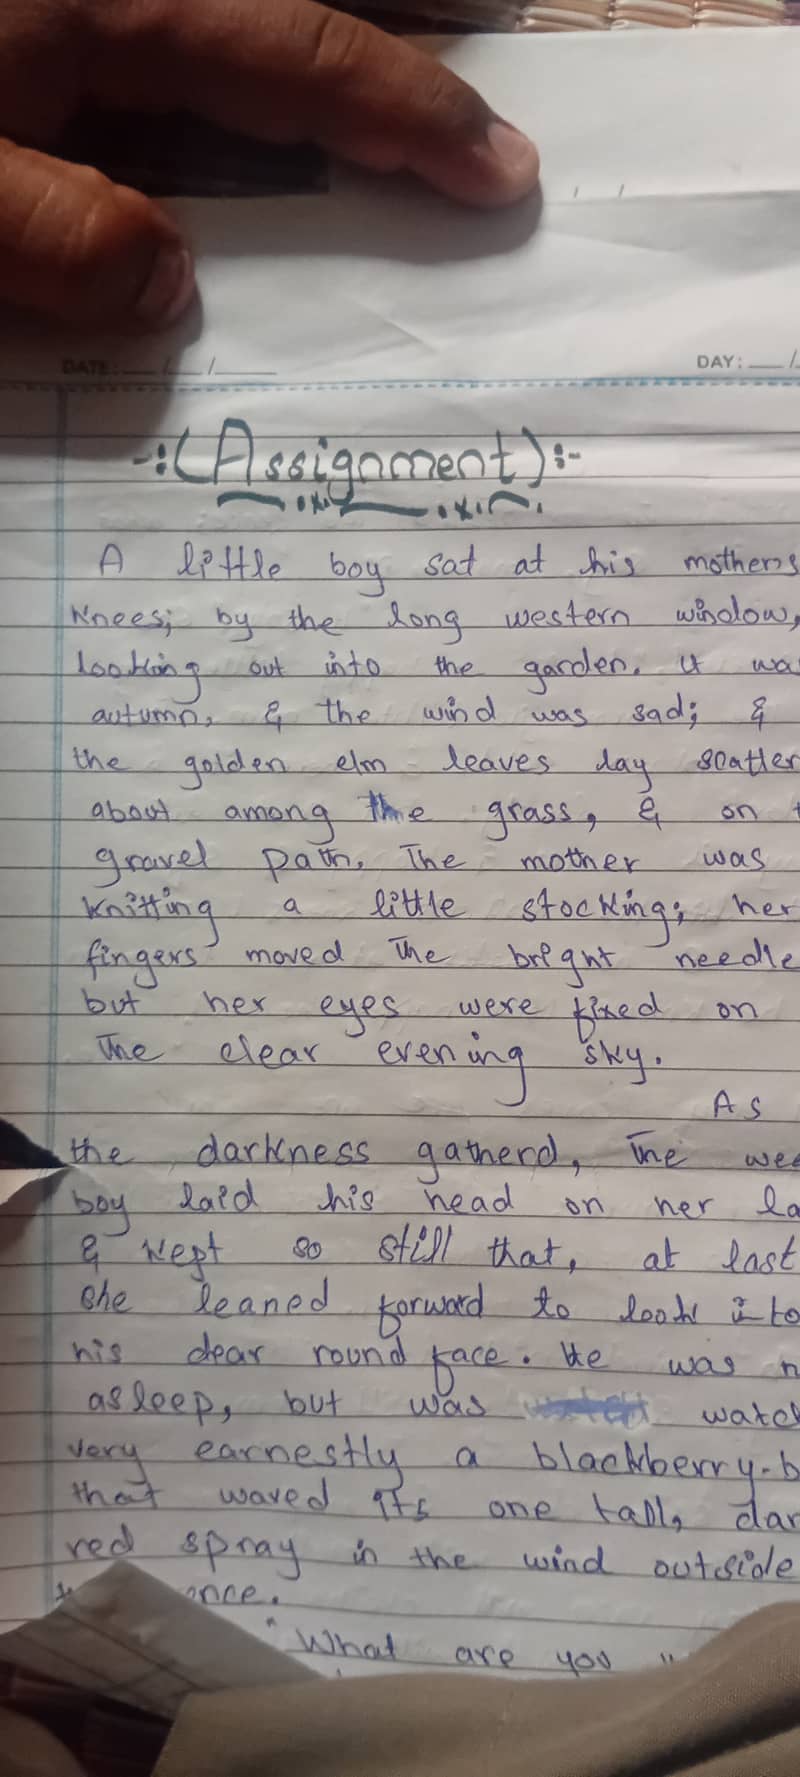 DATE: __/__/__
DAY: __/
-:(Assignment):-
A little boy sat at his mothers
Knees; by the long western window,
looking out into the garden. It wa
autumn, & the wind was sad; &
the golden elm leaves lay scatter
about among the grass, & on t
gravel path. The mother was
knitting a little stocking; her
fingers moved the bright needle
but her eyes were fixed on
The clear evening sky.
As
the darkness gatherd, the wee
boy laid his head on her la
& kept so still that, at last
she leaned forward to look into
his dear round face. He was n
asleep, but was watch
very earnestly a blackberry-b
that waved its one tall, dar
red spray in the wind outside
ence.
"What are you